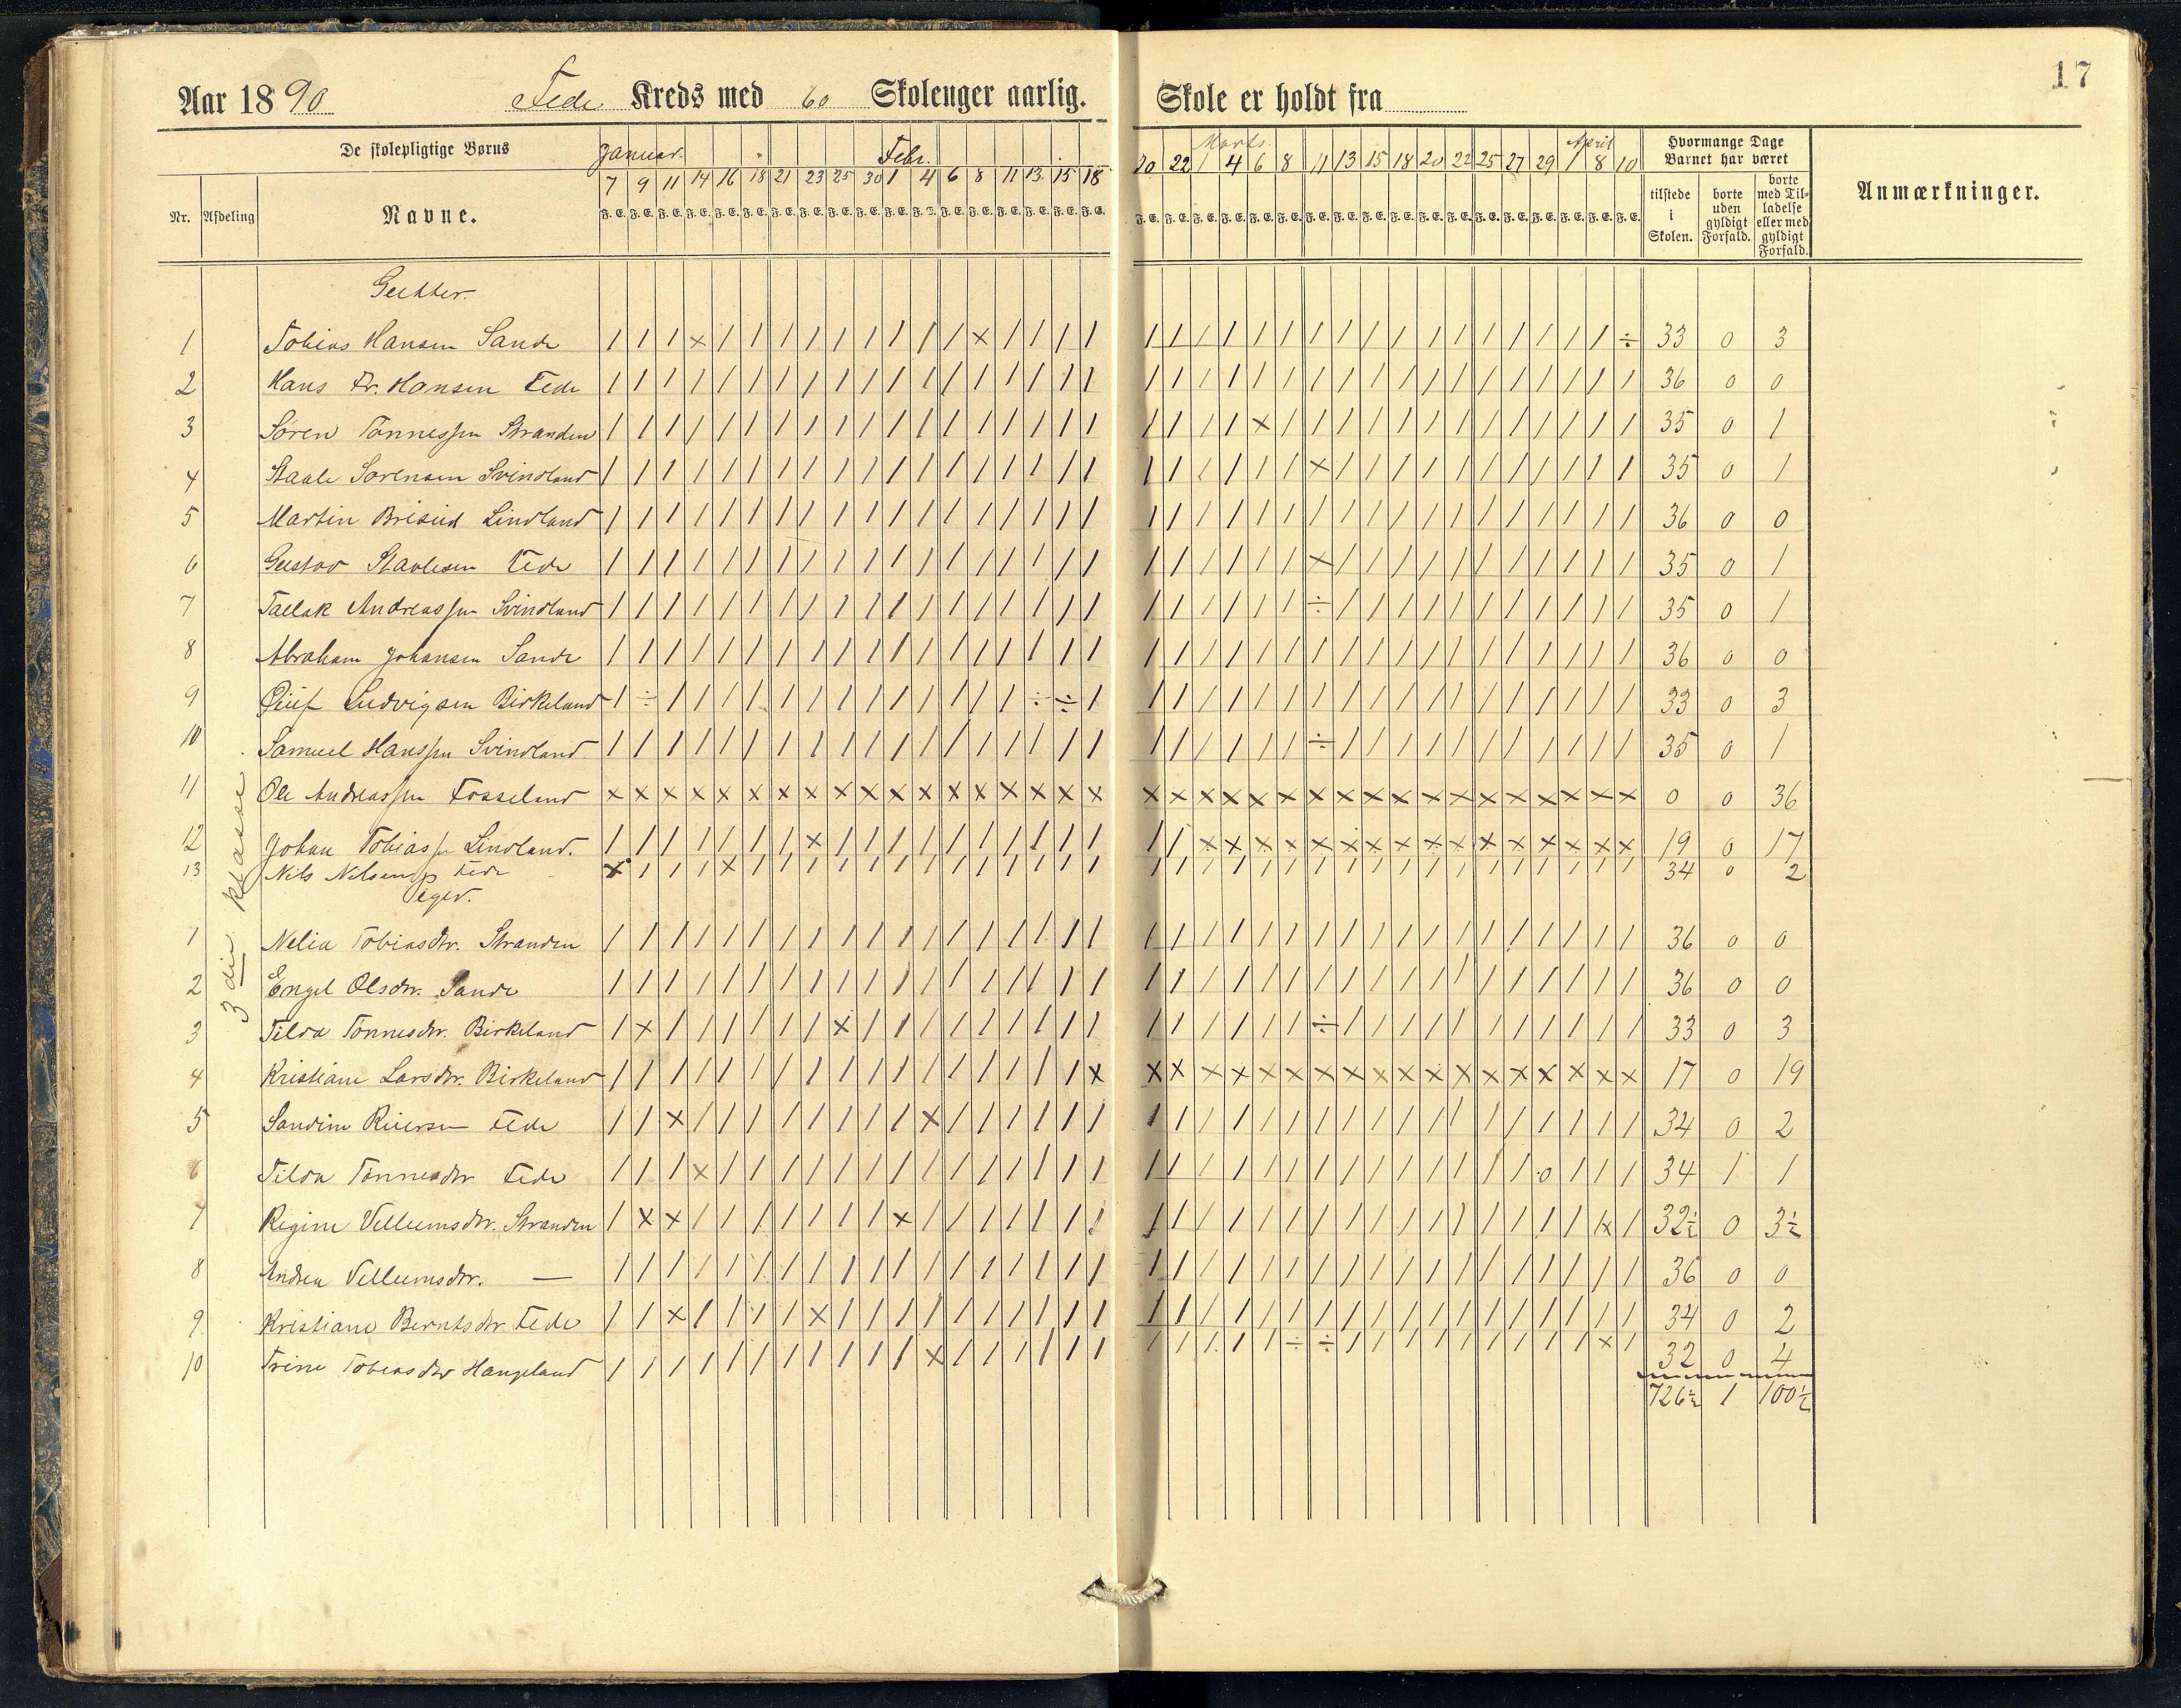 17
Aar 1890 Fede Kreds med 60 Skoleuger aarlig. Skole er holdt fra
De skolepligtige Børns
Januar. Febr. Marts. April
Hvormange Dage Barnet har været
7 9 11 14 16 18 21 23 25 30 1 4 6 8 11 13 15 18 20 22 1 4 6 8 11 13 15 18 20 22 25 27 29 1 8 10
Nr. Afdeling Navne.
F. E. F. E. F. E. F. E. F. E. F. E. F. E. F. E. F. E. F. E. F. E. F. E. F. E. F. E. F. E. F. E. F. E. F. E. F. E. F. E. F. E. F. E. F. E. F. E. F. E. F. E. F. E. F. E. F. E. F. E. F. E. F. E. F. E. F. E. F. E. F. E.
tilstede i Skolen. borte uden gyldigt Forfald. borte med Tilladelse eller med gyldigt Forfald.
Anmærkninger.
Gutter.
3die klasse
1 Tobias Hansen Sande / / / × / / / / / / / / / × / / / / / / / / / / / / / / / / / / / / / ÷ 33 0 3
2 Hans Fr. Hansen Fede / / / / / / / / / / / / / / / / / / / / / / / / / / / / / / / / / / / / 36 0 0
3 Søren Tønnessen Stranden / / / / / / / / / / / / / / / / / / / / / / × / / / / / / / / / / / / / 35 0 1
4 Staale Sørensen Svindland / / / / / / / / / / / / / / / / / / / / / / / / × / / / / / / / / / / / 35 0 1
5 Martin Lindland / / / / / / / / / / / / / / / / / / / / / / / / / / / / / / / / / / / / 36 0 0
6 Gustav Staalesen Fede / / / / / / / / / / / / / / / / / / / / / / / / × / / / / / / / / / / / 35 0 1
7 Tallak Andreassen Svindland / / / / / / / / / / / / / / / / / / / / / / / / ÷ / / / / / / / / / / / 35 0 1
8 Abraham Johansen Sande / / / / / / / / / / / / / / / / / / / / / / / / / / / / / / / / / / / / 36 0 0
9 Ludvigsen Birkeland / ÷ / / / / / / / / / / / / / ÷ ÷ / / / / / / / / / / / / / / / / / / / 33 0 3
10 Samuel Hanssen Svindland / / / / / / / / / / / / / / / / / / / / / / / / ÷ / / / / / / / / / / / 35 0 1
11 Ole Andreassen Fosseland × × × × × × × × × × × × × × × × × × × × × × × × × × × × × × × × × × × × 0 0 36
12 Johan Tobiass. Lindland. / / / / / / / × / / / / / / / / / / / / × × × × × × × × × × × × × × × × 19 0 17
13 Nils Nilsen Fede × / / / × / / / / / / / / / / / / / / / / / / / / / / / / / / / / / / / 34 0 2
Piger.
1 Nelia Tobiasdtr. Stranden / / / / / / / / / / / / / / / / / / / / / / / / / / / / / / / / / / / / 36 0 0
2 Engel Olsdtr. Sande / / / / / / / / / / / / / / / / / / / / / / / / / / / / / / / / / / / / 36 0 0
3 Tilda Tønnesdtr. Birkeland / × / / / / / / × / / / / / / / / / / / / / / / ÷ / / / / / / / / / / / 33 0 3
4 Kristiane Larsdtr. Birkeland / / / / / / / / / / / / / / / / / × × × × × × × × × × × × × × × × × × × 17 0 19
5 Sandine Reiersen Fede / / × / / / / / / / / × / / / / / / / / / / / / / / / / / / / / / / / / 34 0 2
6 Tilda Tønnesdtr Fede / / / × / / / / / / / / / / / / / / / / / / / / / / / / / / / / 0 / / / 34 1 1
7 Regine Vellumsdtr. Stranden / × × / / / / / / / × / / / / / / / / / / / / / / / / / / / / / / / /× / 32½ 0 3½
8 Andrea Vellumsdtr. — / / / / / / / / / / / / / / / / / / / / / / / / / / / / / / / / / / / / 36 0 0
9. Kristiane Berntsdtr. Fede / / × / / / / × / / / / / / / / / / / / / / / / / / / / / / / / / / / / 34 0 2
10 Trine Tobiasdtr Haugeland / / / / / / / / / / / × / / / / / / / / / / / ÷ ÷ / / / / / / / / / × / 32 0 4
726½ 1 100½